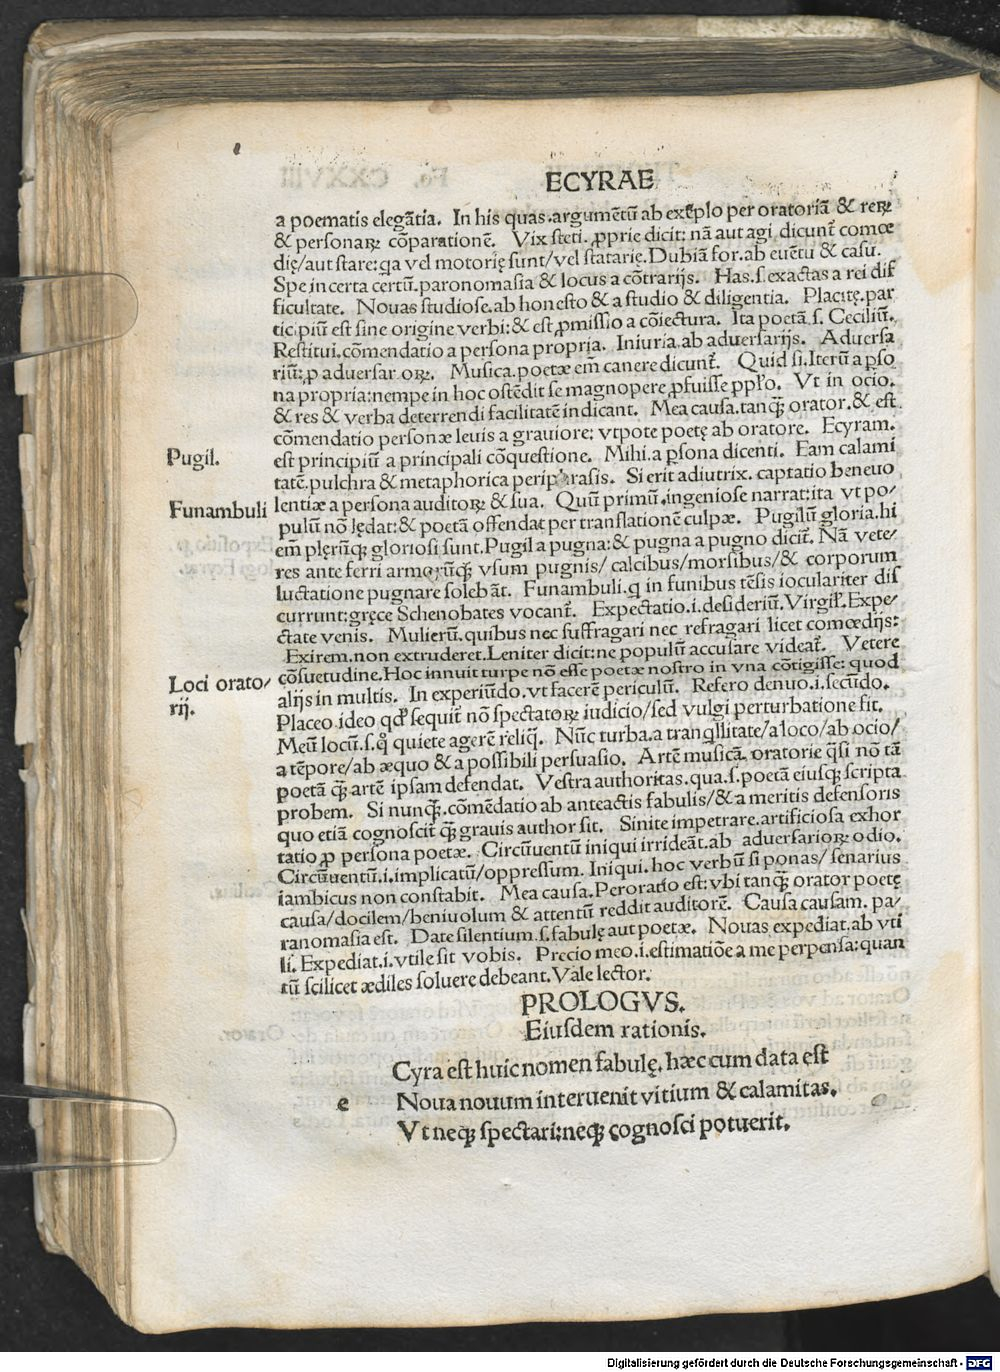 ECYRAE
a poematis elegãtia. In his quas.argumẽtũ ab exẽplo per oratoriã & reꝝ
& personaꝝ cõparationẽ. Vix steti. ꝓprie dicit: nã aut agi dicunt᷑ comœ
dię/aut stare:qa vel motorię sunt/vel statarię.Dubiã for.ab euẽtu & casu.
Spe incerta certũ.paronomasia & locus a cõtrarijs. Has.s.exactas a rei dif
ficultate. Nouas studiose.ab honesto & a studio & diligentia. Placitę.par
ticipiũ est sine origine verbi:& est ꝓmissio a cõiectura. Ita poetã.s. Ceciliũ.
Restitui.cõmendatio a persona propria. Iniuria.ab aduersarijs. Aduersa
riũ:ꝓ aduersar.oꝝ. Musica.poetæ em̃ canere dicunt᷑. Quid si.Iterũ a ꝑso
na propria:nempe in hoc ostẽdit se magnopere ꝓfuisse pp̃lo. Vt in ocio.
& res & verba deterrendi facilitatẽ indicant. Mea causa.tanq̃ orator.& est
cõmendatio personæ leuis a grauiore: vtpote poetę ab oratore. Ecyram.
est principiũ a principali cõquestione. Mihi.a ꝑsona dicenti. Eam calami
Pugil.
tatẽ.pulchra & metaphorica periphrasis. Si erit adiutrix. captatio beneuo
lentiæ a persona auditoꝝ & sua. Quũ primũ.ingeniose narrat:ita vt po/
Funambuli
pulũ nõ lędat:& poetã offendat per translationẽ culpæ. Pugilũ gloria.hi
em̃ plęrũq; gloriosi sunt.Pugil a pugna:& pugna a pugno dicit᷑. Nã vete/
res ante ferri armorũq; vsum pugnis/ calcibus/morsibus/& corporum
luctatione pugnare solebãt. Funambuli.q in funibus tẽsis ioculariter dis
currunt:gręce Schenobates vocant᷑. Expectatio.i.desideriũ.Virgil᷑.Expe/
ctate venis. Mulierũ.quibus nec suffragari nec refragari licet comœdijs:
Exirem.non extruderer.Leniter dicit:ne populũ accusare videat᷑. Vetere
cõsuetudine.Hoc innuit turpe nõ esse poetæ nostro in vna cõtigisse: quod
Loci orato/
rij.
alijs in multis. In experiũdo.vt facerẽ periculũ. Refero denuo.i.secũdo.
Placeo.ideo qd̓ sequit᷑ nõ spectatoꝝ iudicio/sed vulgi perturbatione fit.
Meũ locũ.s.q̊ quiete agerẽ reliq̃. Nũc turba.a tranq̃llitate/a loco/ab ocio/
a tẽpore/ab æquo & a possibili persuasio. Artẽ musicã. oratorie q̃si nõ tã
poetã q̃ artẽ ipsam defendat. Vestra authoritas.qua.s.poetã eiusq; scripta
probem. Si nunq̃.cõmẽdatio ab anteactis fabulis/& a meritis defensoris
quo etiã cognoscit q̃ grauis author sit. Sinite impetrare.artificiosa exhor
tatio ꝓ persona poetæ. Circũuentũ iniqui irrideãt.ab aduersarioꝝ odio.
Circũuentũ.i.implicatũ/oppressum. Iniqui.hoc verbũ si ponas/ senarius
iambicus non constabit. Mea causa.Peroratio est:vbi tanq̃ orator poetę
causa/docilem/beniuolum & attentũ reddit auditorẽ. Causa causam. pa/
ranomasia est. Date silentium.s.fabulę aut poetæ. Nouas expediat.ab vti
li. Expediat.i.vtile sit vobis. Precio meo.i.estimatiõe a me perpensa:quan
tũ scilicet ædiles soluere debeant.Vale lector.
PROLOGVS.
Eiusdem rationis.
Cyra est huic nomen fabulę.hæc cum data est
e Noua nouum interuenit vitium & calamitas.
Vt neq; spectari:neq; cognosci potuerit.
Digitalisierung gefördert durch die Deutsche Forschungsgemeinschaft - DFG